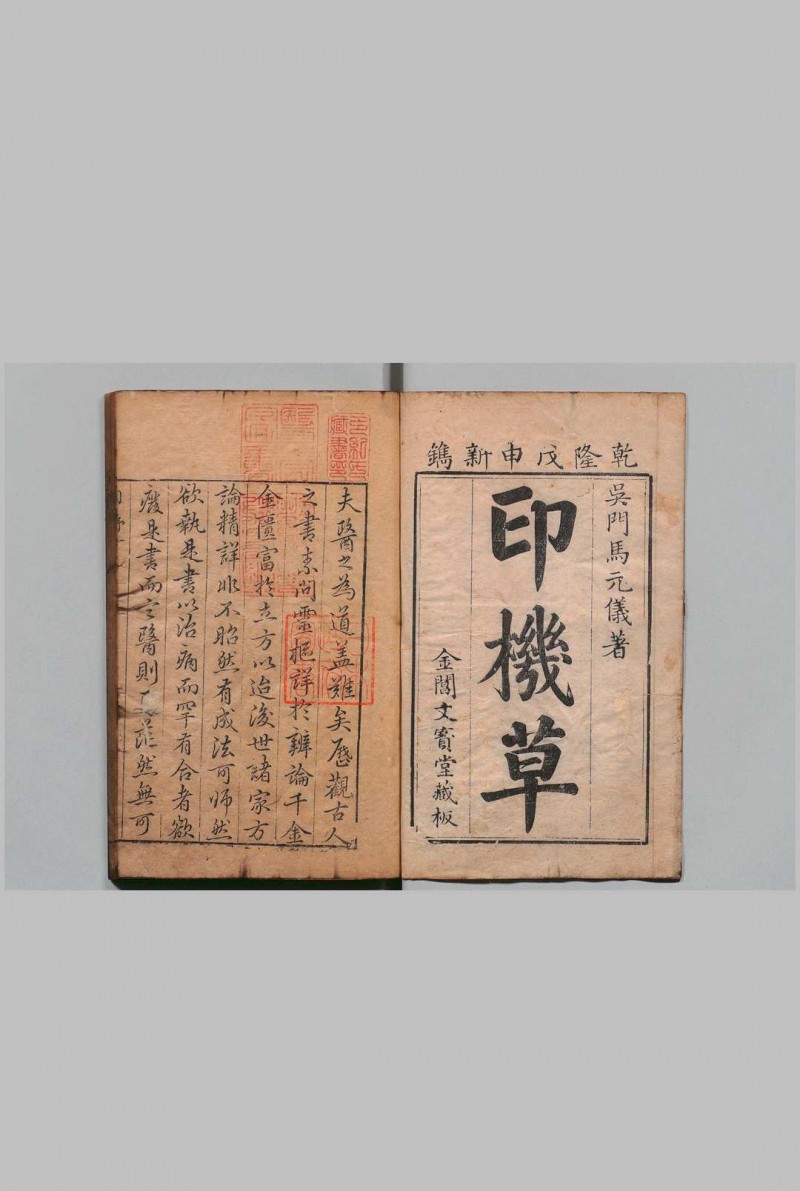 乾隆戊申新鐫
吳門馬元儀著
印機草
金閶文寳堂藏板
夫醫之為道盖難矣歷觀古人
之書素问靈樞詳於辨論千金
金匱富於立方以迨後世諸家方
論精詳非不昭然有成法可師然
欲執是書以治病而罕有合者欲
癈是書而言醫則 茫然無可